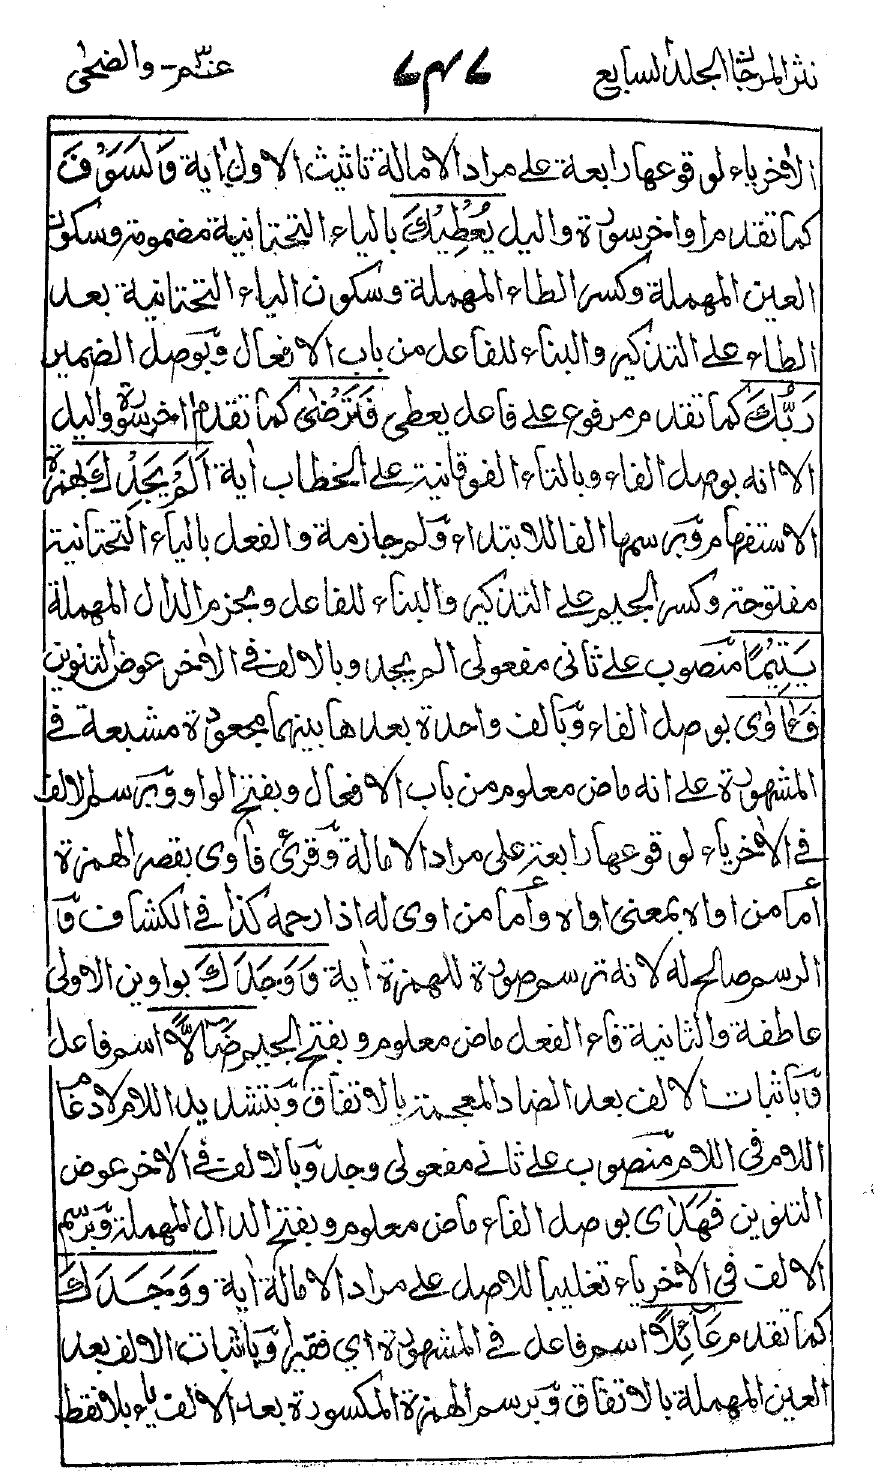 نثر المرجان الجلد السابع ٧٤٧ عمّ - والضحى
الاٰخر ياء لوقوعها رابعة على مراد الامالة تانيث الاول اٰية وَلَسَوْفَ
كما تقدم اواخر سورة واليل يُعْطِيْكَ بالياء التحتانية مضمومة وسكون
العين المهملة وكسر الطاء المهملة وسكون الياء التحتانية بعد
الطاء على التذكير والبناء للفاعل من باب الافعال وبوصل الضمير
رَبُّكَ كما تقدم مرفوع على فاعل يعطى فَتَرْضٰى كما تقدم اٰخر سورة واليل
الا انه بوصل الفاء وبالتاء الفوقانية على الخطاب اٰية اَلَمْ يَجِدْكَ بهمزة
الاستفهام وبرسمها الفا للابتداء ولم جازمة والفعل بالياء التحتانية
مفتوحة وكسر الجيم على التذكير والبناء للفاعل وبجزم الدال المهملة
يَتِيْمًا منصوب على ثانى مفعولى الم يجد وبالالف فى الاٰخر عوض التنوين
فَـَٔاوٰى بوصل الفاء وبالف واحدة بعدها بينهما مجعودة مشبعة فى
المشهورة على انه ماض معلوم من باب الافعال وبفتح الواو وبرسم الالف
فى الاٰخر ياء لوقوعها رابعة على مراد الامالة وقرئ فاوى بقصر الهمزة
أما من اواه بمعنى اواه وأما من اوى له اذا رحمه كذا فى الكشاف و
الرسم صالح له لانه ترسم صورة للهمزة اٰية وَوَجَدَكَ بواوين الاولى
عاطفة والثانية فاء الفعل ماض معلوم وبفتح الجيم ضَآلًّا اسم فاعل
وباثبات الالف بعد الضاد المعجمة بالاتفاق وبتشديد اللام لادغام
اللام فى اللام منصوب على ثانى مفعولى وجد وبالالف فى الاٰخر عوض
التنوين فَهَدٰى بوصل الفاء ماض معلوم وبفتح الدال المهملة وبرسم
الالف فى الاٰخر ياء تغليبا للاصل على مراد الامالة اٰية وَوَجَدَكَ
كما تقدم عَآئِلًا اسم فاعل فى المشهورة اي فقيرا وباثبات الالف بعد
العين المهملة بالاتفاق وبرسم الهمزة المكسورة بعد الالف ياء بلا نقط